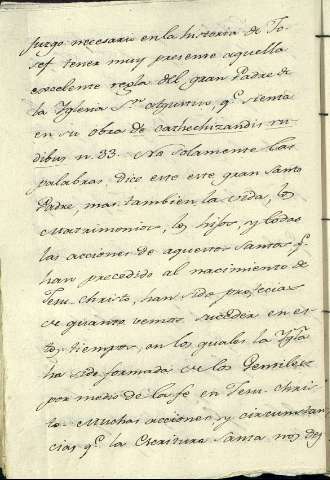 Juzgo necesario en la historia de Jo-
sef tener muy presente aquella
excelente regla del gran Padre de
la Yglesia Sn. Agustin, qe. sienta
en su obra de cathechizandis ru-
dibus n. 33. No solamente las
palabras dice este este gran Santo
Padre, mas tambien la vida, los
Matrimonios, los hijos, y todas
las acciones de aquestos Santos qe.
han precedido al nacimiento de
Jesu-Christo, han sido profecias
de quanto vemos suceder en es-
tos tiempos, en los quales la Ygla.
ha sido formada de los Gentiles
por medio de la fe en Jesu-Chris-
to. Muchas acciones, y circunstan-
cias qe. la Escritura Santa nos dej